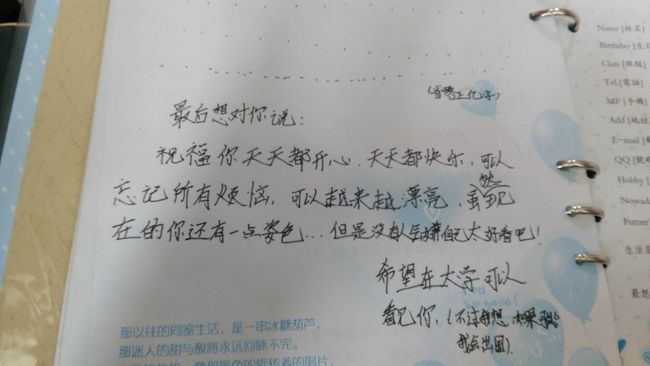 最后想对你说：
祝福你天天都开心，天天都快乐，可以
忘记所有烦恼，可以越来越漂亮，虽然现
在的你还有一点姿色...但是没有人会嫌自己太好看吧！
希望在大学可以
看见你，（不过我想，如果
我会出国）．
那以往的同窗生活，是一串冰糖葫芦，
那迷人的甜与酸将永远回味不完。
Name [姓名]
Birthday [生
Class [班級]
Tel.[電話]
MP [手機]
Add [地址
E-mail [郵
QQ [號碼
Hobby [
Nowada
Future
生活是
最想